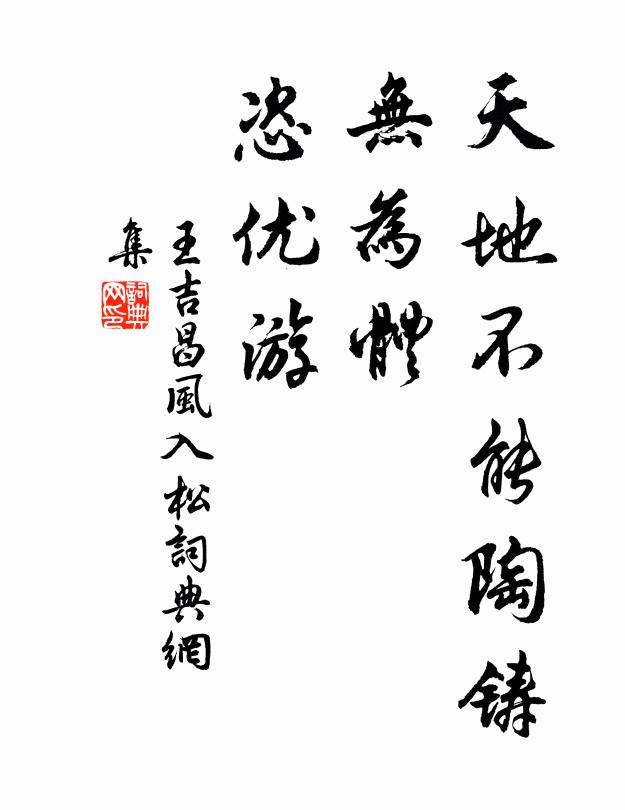 天地不能陶鋳
無為體
恣优游
王吉昌風入松詞典網
集
詞典
网印